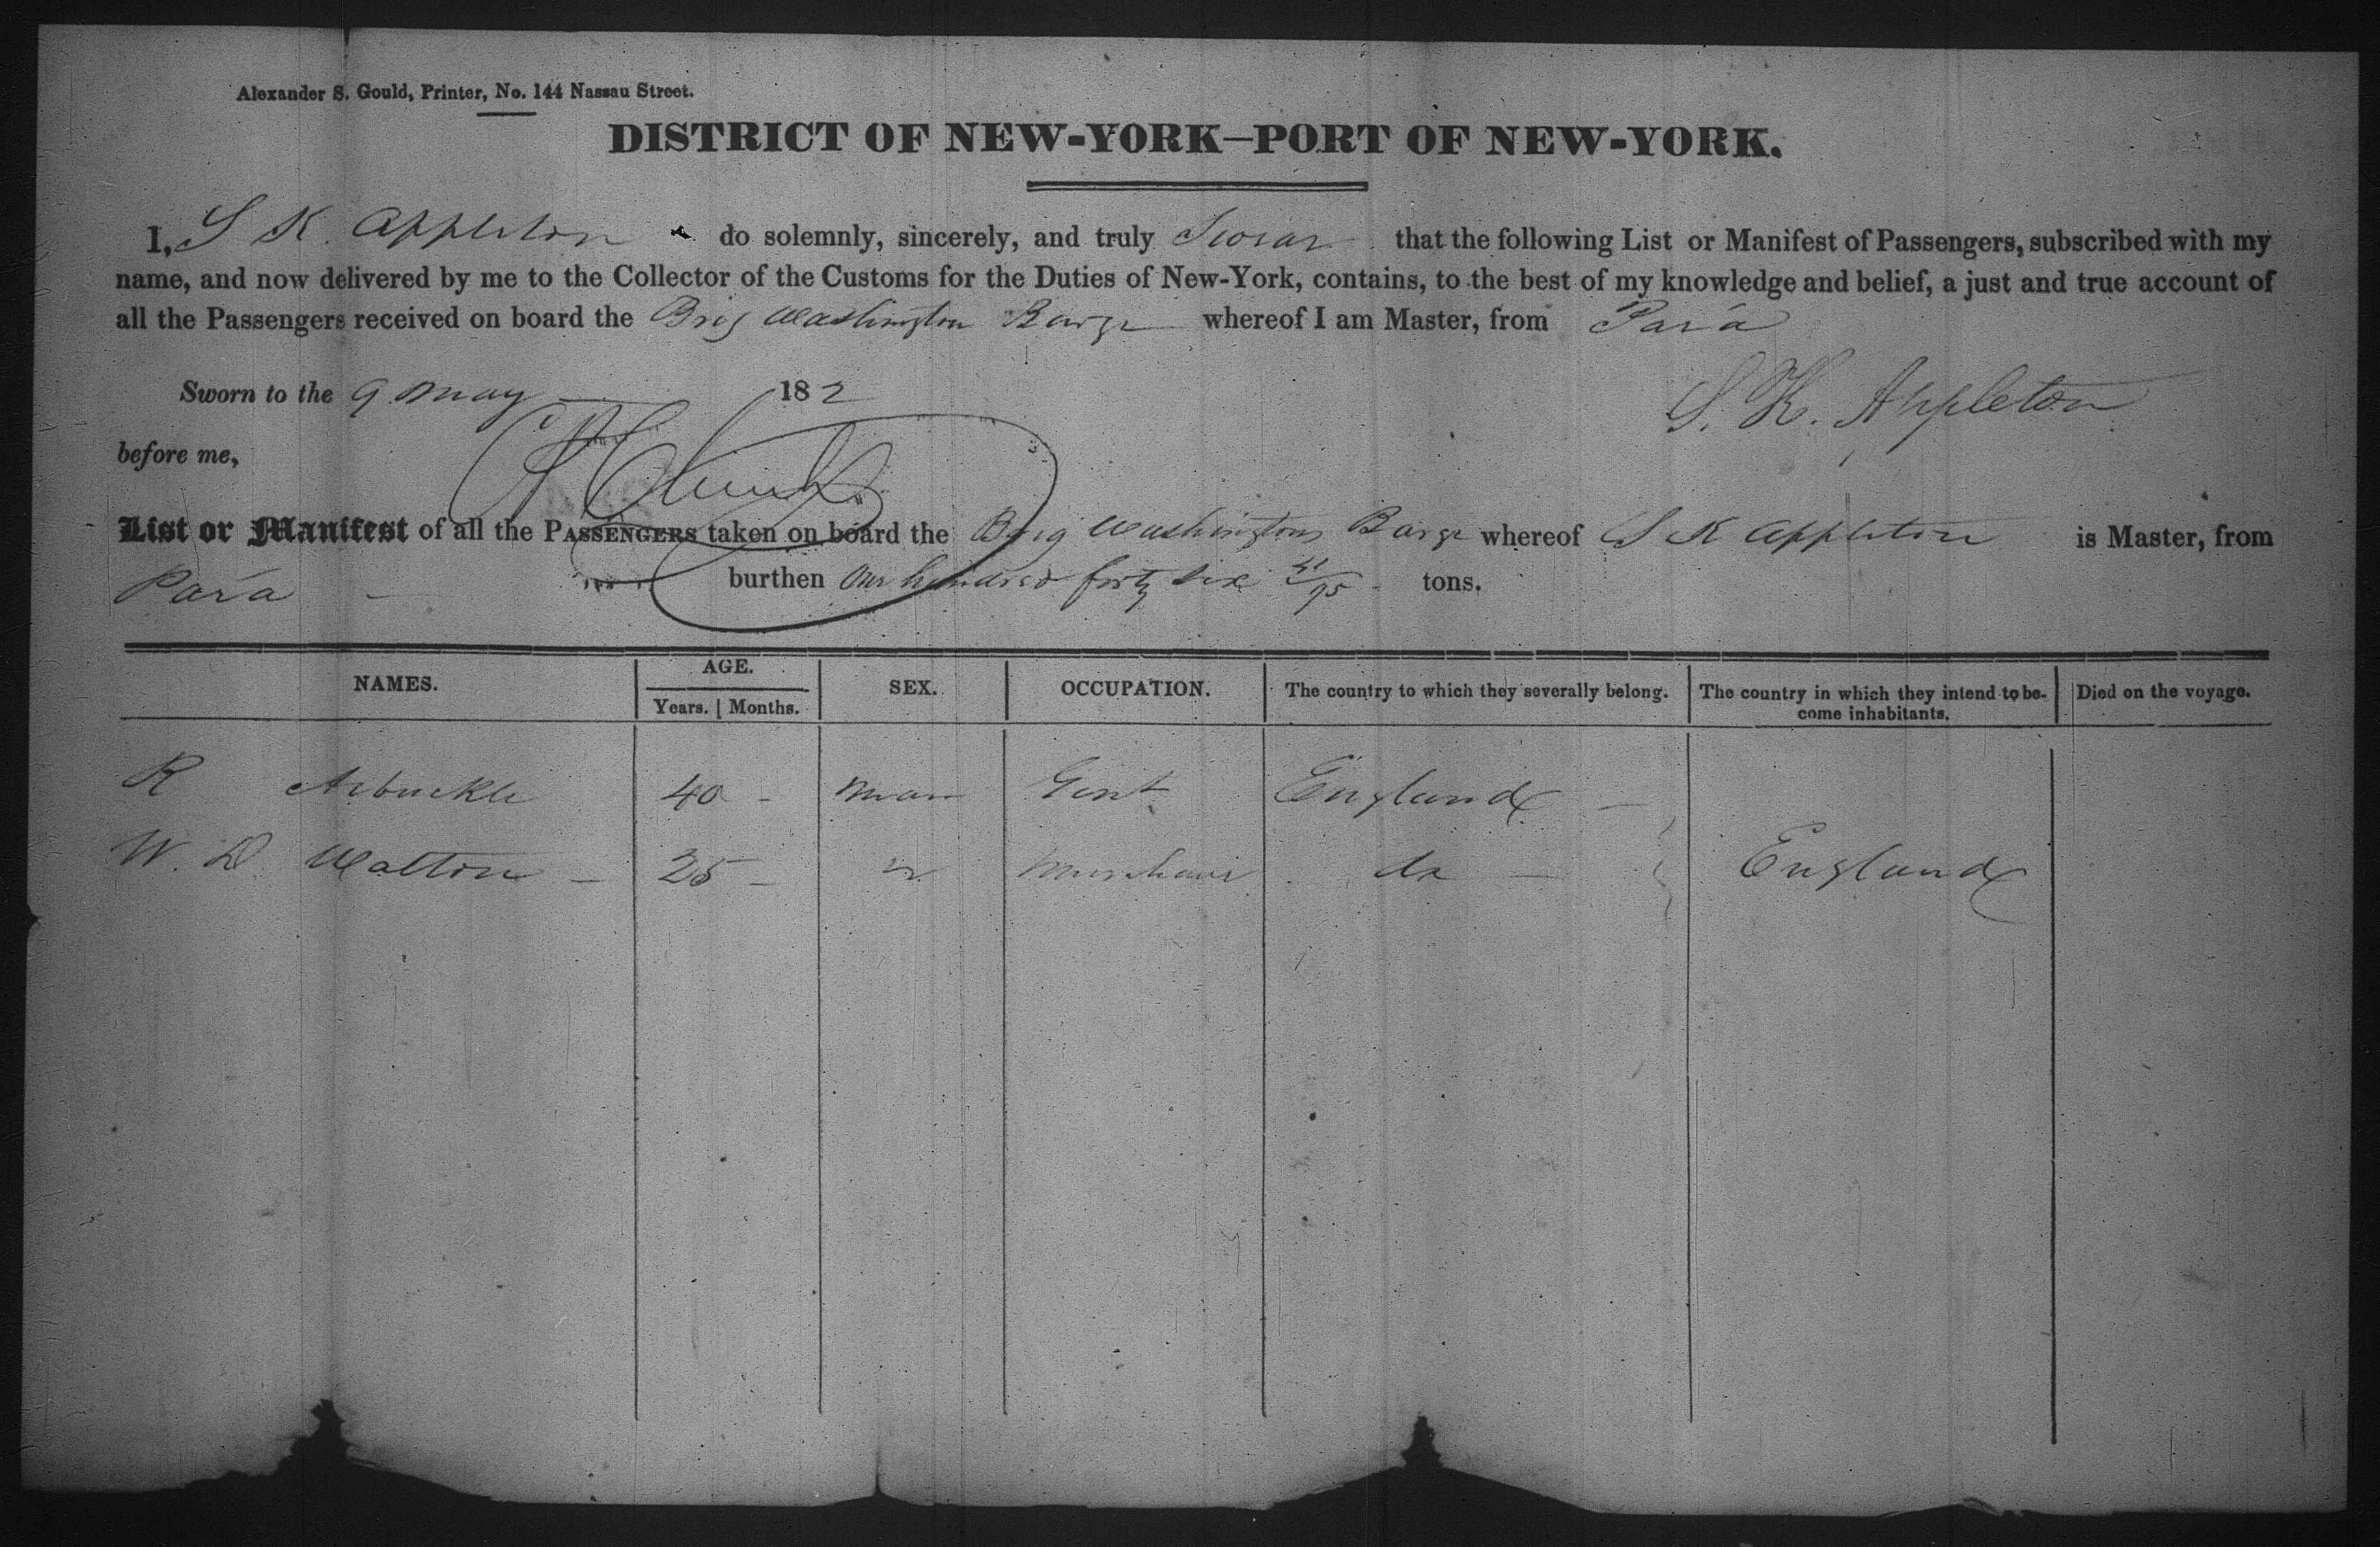 Alexander S. Gould, Printer, No. 144 Nassau Street.
DISTRICT OF NEW-YORK—PORT OF NEW-YORK.
I, S K Appleton do solemnly, sincerely, and truly Swear that the following List or Manifest of Passengers, subscribed with my
name, and now delivered by me to the Collector of the Customs for the Duties of New-York, contains, to the best of my knowledge and belief, a just and true account of
all the Passengers received on board the Brig Washington Barge whereof I am Master, from Pará
Sworn to the 9 May 182
S. K. Appleton
before me,
List or Manifest of all the PASSENGERS taken on board the Brig Washingtons Barge whereof S K Appleton is Master, from
Pará burthen One hundred forty six /95 tons.
NAMES. AGE. SEX. OCCUPATION. The country to which they severally belong. The country in which they intend to be- Died on the voyage.
Years. Months. come inhabitants.
R Arbuckle 40 - man Gent England -
W. D Walton - 25 - Merchant do - England